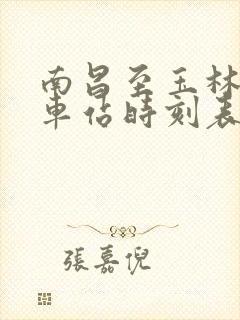 南昌至玉林
車佔時刻表
張嘉倪